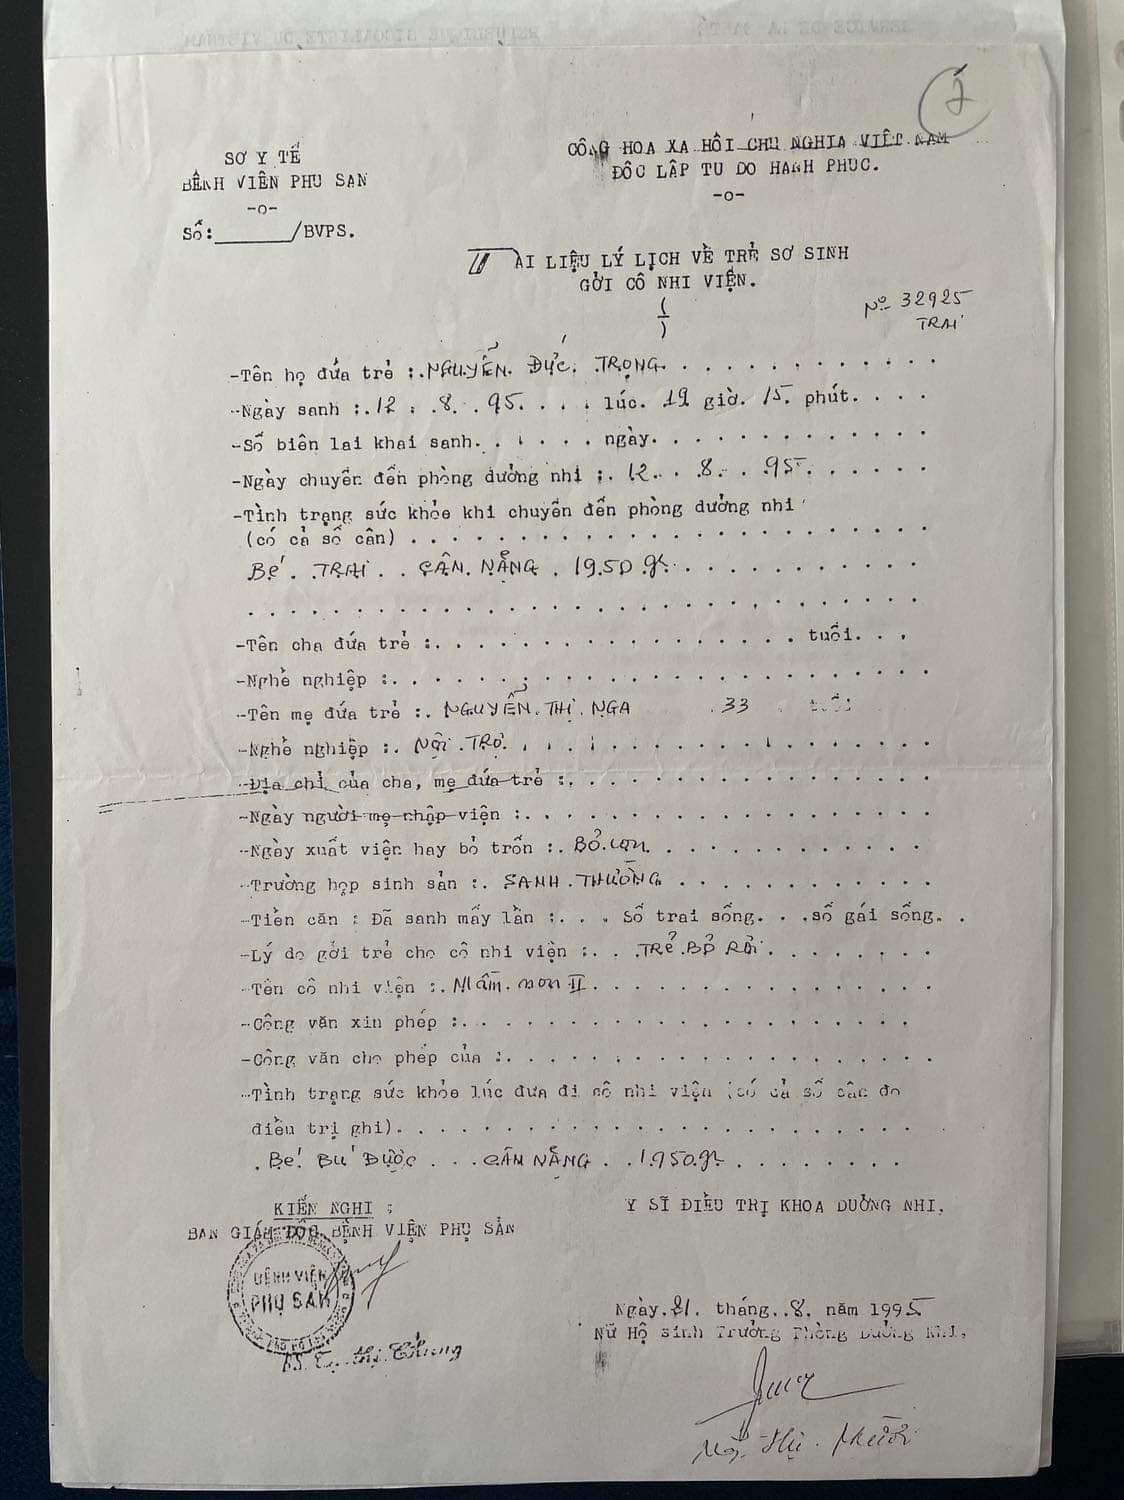 SƠ Y TẾ
BỆNH VIÊN PHU SAN
-o-
Số:______/BVPS.
CÔNG HOA XA HÔI CHU NGHIA VIÊT NAM
ĐÔC LÂP TU DO HANH PHUC.
-o-
TAI LIỆU LÝ LỊCH VỀ TRẺ SƠ SINH
GỞI CÔ NHI VIỆN.
Nº 32925
TRAI
-Tên họ đứa trẻ :.NGUYỄN. ĐỨC. TRỌNG. . . . . . . . . .
-Ngày sanh :.12 . .8. .95. . . . lúc. 19 giờ. 15. phút. . . .
-Số biên lai khai sanh. . . . . . ngày. . . . . . . . . . .
-Ngày chuyển đến phòng dưởng nhi :. 12. . 8 . .95. . . . . .
-Tình trạng sức khỏe khi chuyển đến phòng dưởng nhi
(có cả số cân) . . . . . . . . . . . . . . . . . . . . .
BÉ. .TRAI. . CÂN. NẶNG . 1950 gr. . . . . . . . . .
-Tên cha đứa trẻ :. . . . . . . . . . . . . . . tuổi. . .
-Nghề nghiệp :. . . . . . . . . . . . . . . . . . . . . .
-Tên mẹ đứa trẻ :. NGUYỄN. THỊ. NGA .33 . tuổi
-Nghề nghiệp :. NỘI .TRỢ. . . . . . . . . . . . . . . . .
-Địa chỉ của cha, mẹ đứa trẻ :. . . . . . . . . . . . . .
-Ngày người mẹ nhập viện :. . . . . . . . . . . . . . . .
-Ngày xuất viện hay bỏ trốn :. BỎ.con. . . . . . . . . . .
-Trường hợp sinh sản :. SANH .THƯỜNG. . . . . . . . . .
-Tiền căn : Đã sanh mấy lần :. . . Số trai sống. . .số gái sống. .
-Lý do gởi trẻ cho cô nhi viện :. . .TRẺ.BỎ RƠI. . . . . . .
-Tên cô nhi viện :.Mầm.non II. . . . . . . . . . . . .
-Công văn xin phép :. . . . . . . . . . . . . . . . . . .
-Công văn cho phép của :. . . . . . . . . . . . . . . . .
-Tình trạng sức khỏe lúc đưa đi cô nhi viện (có cả số cân do
điều trị ghi). . . . . . . . . . . . . . . . . . . . . .
. BÉ. BÚ ĐƯỢC . . . CÂN NẶNG. . 1.950.gr. . . . . . . .
KIẾN NGHI :
BAN GIÁM ĐỐC BỆNH VIỆN PHỤ SẢN
BỆNH VIỆN
PHỤ SẢN
Y SĨ ĐIỀU TRỊ KHOA DUỞNG NHI.
Ngày.21. tháng..8. năm 1995
Nữ Hộ sinh Trưởng Phòng Dưởng Nhi,